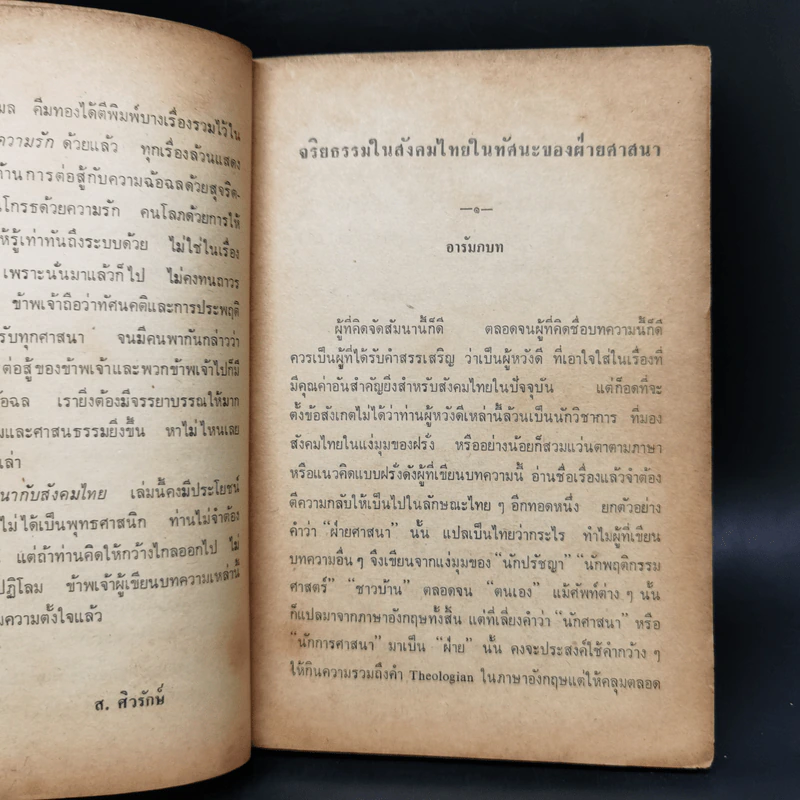 มล คีมทองได้ตีพิมพ์บางเรื่องรวมไว้ใน
ความรัก ด้วยแล้ว ทุกเรื่องล้วนแสดง
ด้านการต่อสู้กับความฉ้อฉลด้วยสุจริต-
นโกรธด้วยความรัก คนโลภด้วยการให้
ห้รู้เท่าทันถึงระบบด้วย ไม่ใช่ในเรื่อง
เพราะนั่นมาแล้วก็ไป ไม่คงทนถาวร
ข้าพเจ้าถือว่าทัศนคติและการประพฤติ
รับทุกศาสนา จนมีคนพากันกล่าวว่า
ต่อสู้ของข้าพเจ้าและพวกข้าพเจ้าไปก็มี
ฉ้อฉล เรายิ่งต้องมีจรรยาบรรณให้มาก
มและศาสนธรรมยิ่งขึ้น หาไม่ไหนเลย
เล่า
นากับสังคมไทย เล่มนี้คงมีประโยชน์
ไม่ได้เป็นพุทธศาสนิก ท่านไม่จำต้อง
แต่ถ้าท่านคิดให้กว้างไกลออกไป ไม่
ปฏิโลม ข้าพเจ้าผู้เขียนบทความเหล่านี้
มความตั้งใจแล้ว
ส. ศิวรักษ์
จริยธรรมในสังคมไทยในทัศนะของฝ่ายศาสนา
—๑—
อารัมภบท
ผู้ที่คิดจัดสัมนานี้ก็ดี ตลอดจนผู้ที่คิดชื่อบทความนี้ก็ดี
ควรเป็นผู้ที่ได้รับคำสรรเสริญ ว่าเป็นผู้หวังดี ที่เอาใจใส่ในเรื่องที่
มีคุณค่าอันสำคัญยิ่งสำหรับสังคมไทยในปัจจุบัน แต่ก็อดที่จะ
ตั้งข้อสังเกตไม่ได้ว่าท่านผู้หวังดีเหล่านี้ล้วนเป็นนักวิชาการ ที่มอง
สังคมไทยในแง่มุมของฝรั่ง หรืออย่างน้อยก็สวมแว่นตาตามภาษา
หรือแนวคิดแบบฝรั่งดังผู้ที่เขียนบทความนี้ อ่านชื่อเรื่องแล้วจำต้อง
ตีความกลับให้เป็นไปในลักษณะไทย ๆ อีกทอดหนึ่ง ยกตัวอย่าง
คำว่า “ฝ่ายศาสนา” นั้น แปลเป็นไทยว่ากระไร ทำไมผู้ที่เขียน
บทความอื่น ๆ จึงเขียนจากแง่มุมของ “นักปรัชญา” “นักพฤติกรรม
ศาสตร์” “ชาวบ้าน” ตลอดจน “ตนเอง” แม้ศัพท์ต่าง ๆ นั้น
ก็แปลมาจากภาษาอังกฤษทั้งสิ้น แต่ที่เลี่ยงคำว่า “นักศาสนา” หรือ
“นักการศาสนา” มาเป็น “ฝ่าย” นั้น คงจะประสงค์ใช้คำกว้าง ๆ
ให้กินความรวมถึงคำ Theologian ในภาษาอังกฤษแต่ให้คลุมตลอด